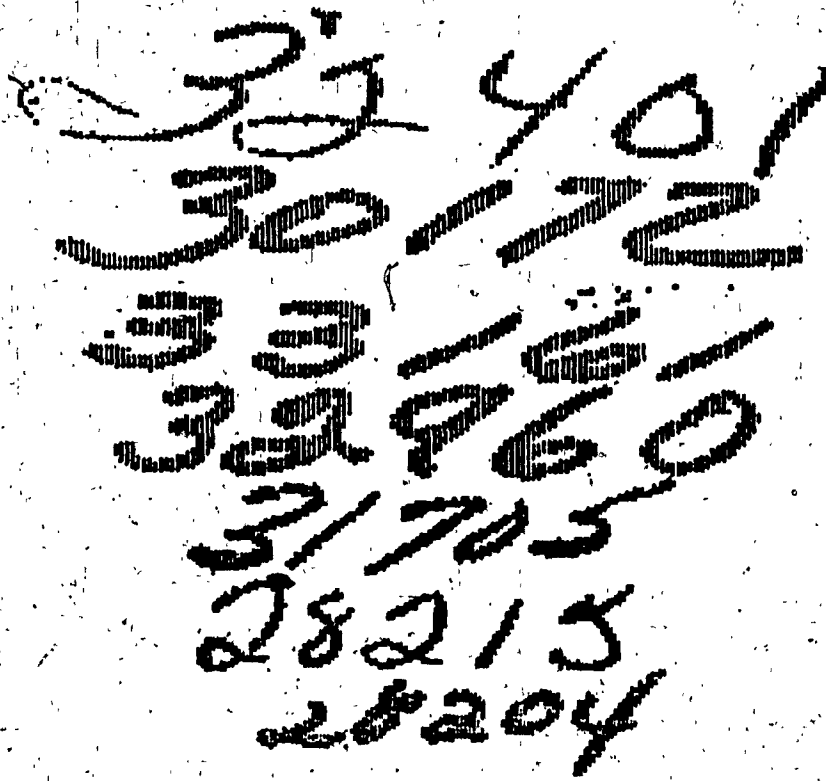 32401
30172
33161
32860
31705
28215
28204